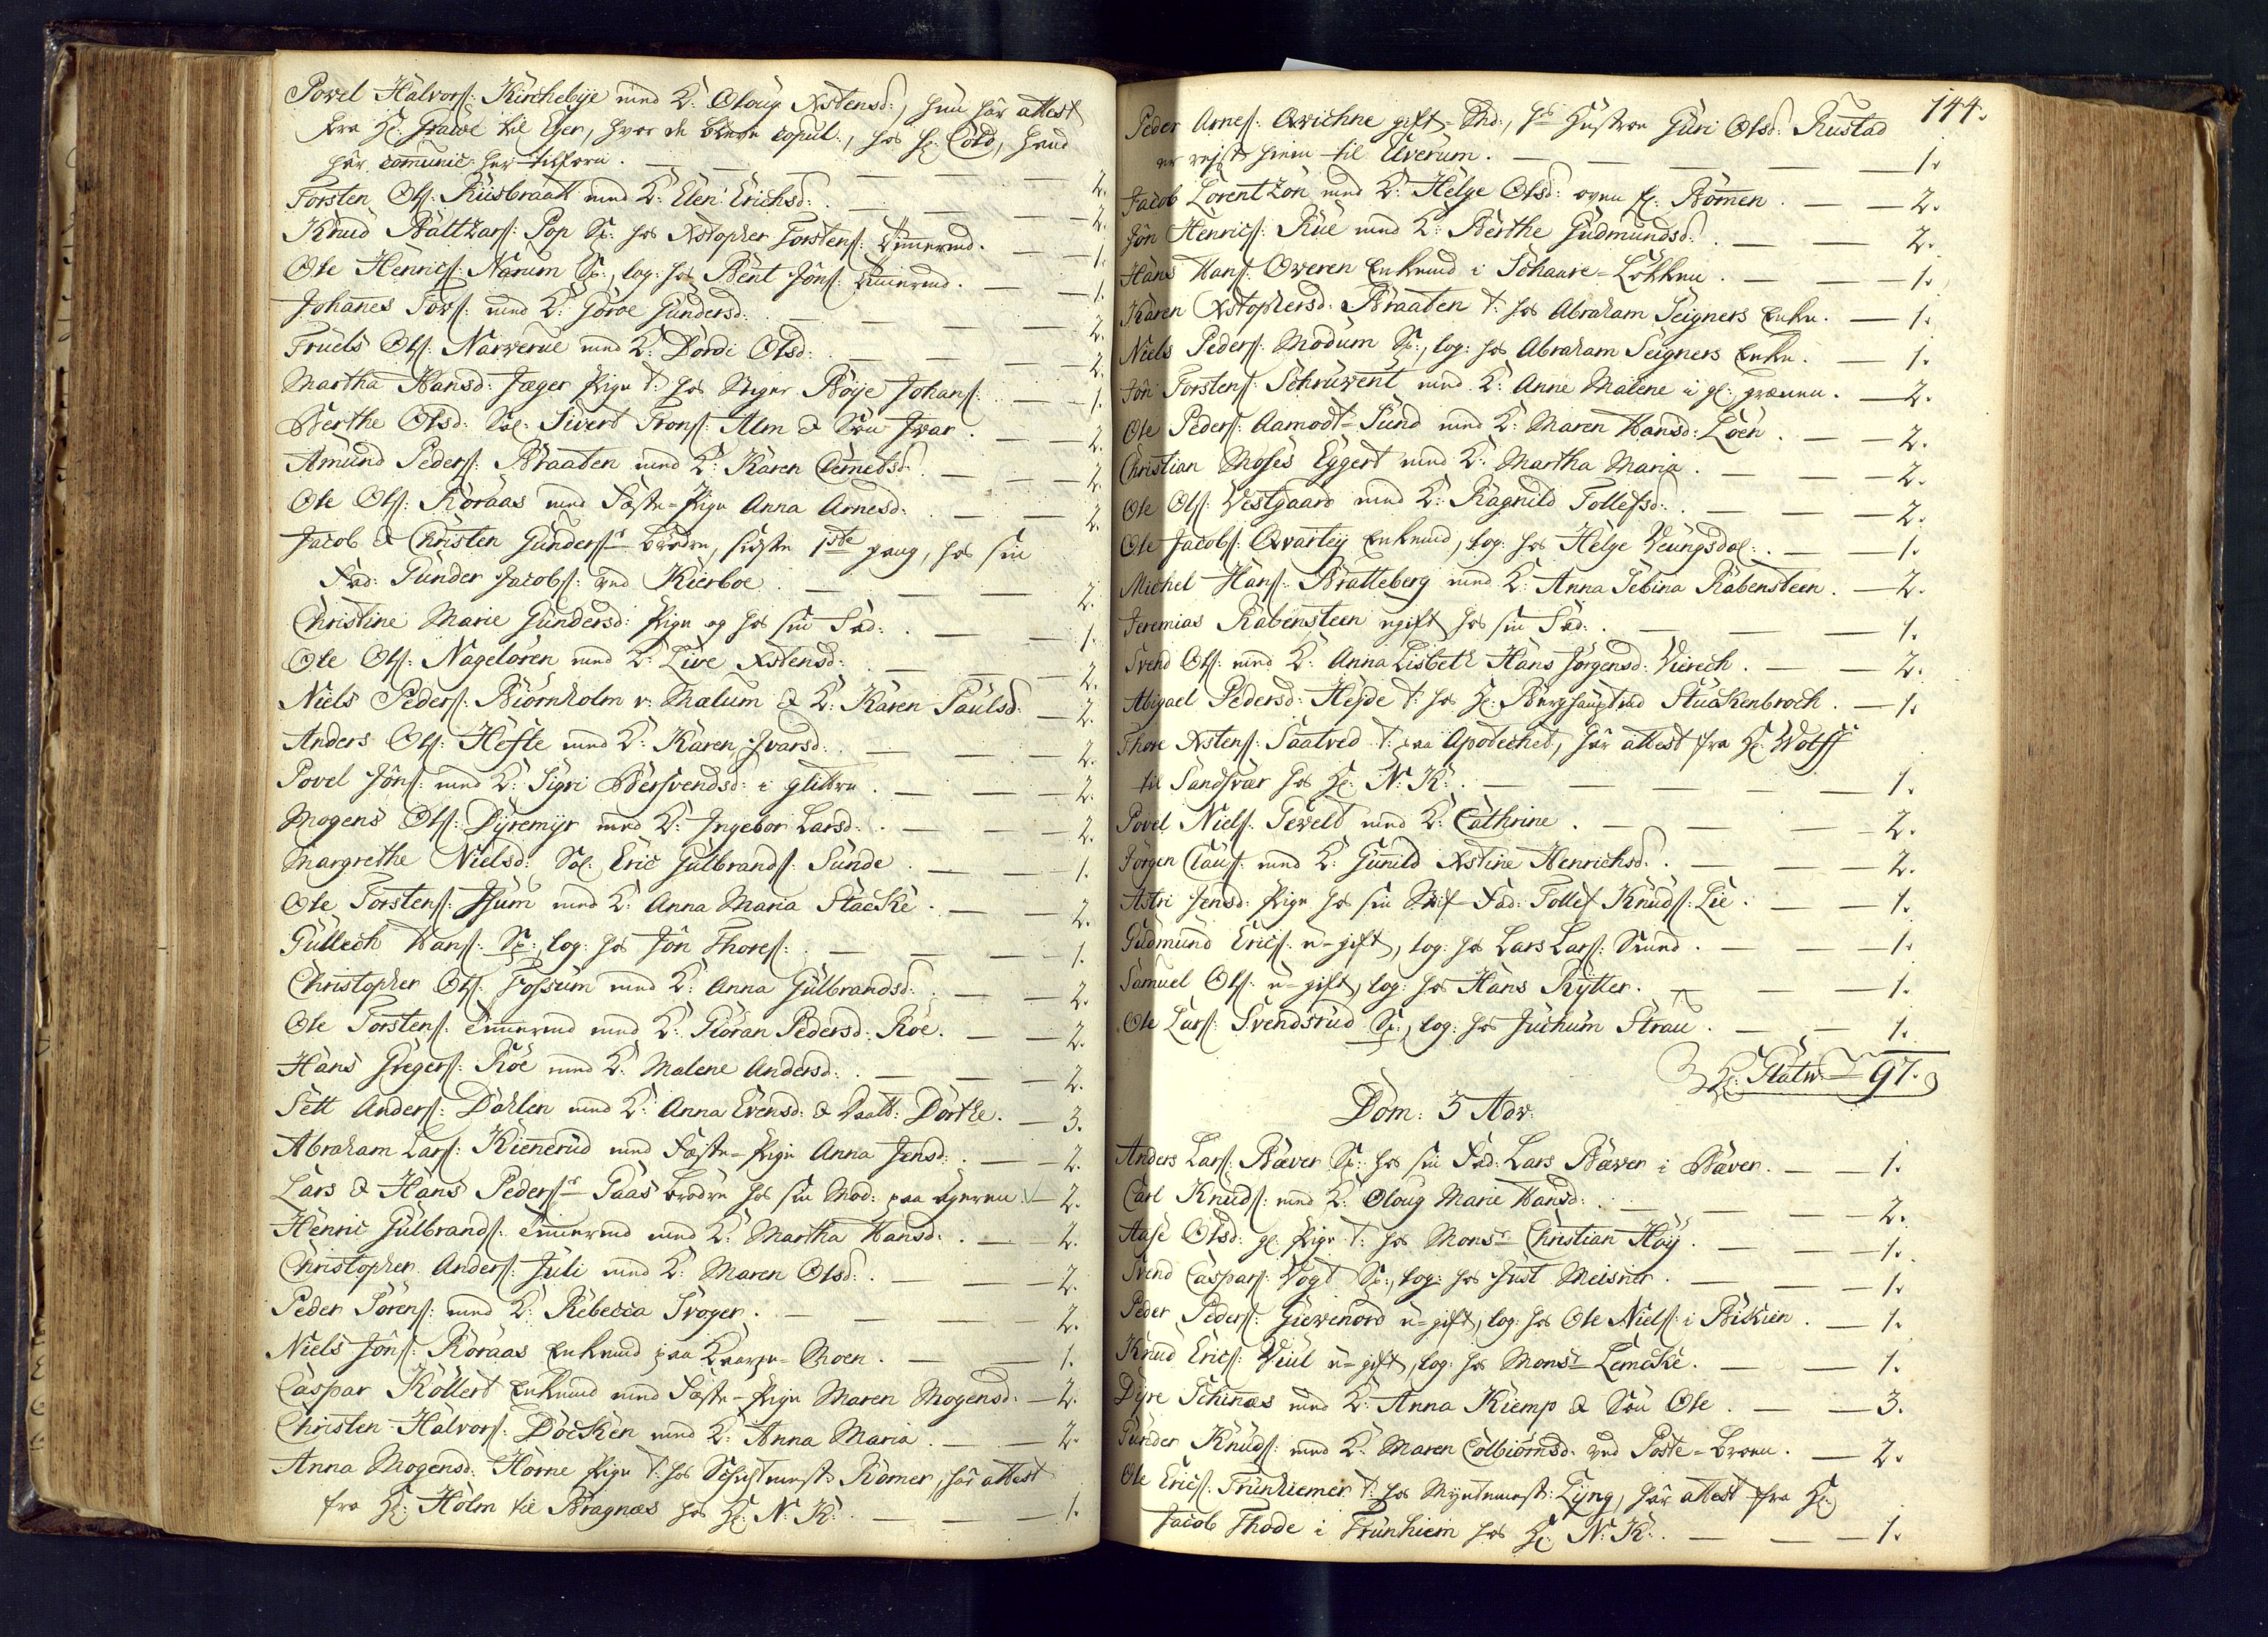 Povel Halvors: Kirchebije med K: Oloug Xstensd:, hun har attest
fra Hr: Grawe til Eger, hvor de bleve copul:, hos Hr: Cold, hand
har comunic: her tilforn. — 2.
Torsten Ols: Riisbraatt med K: Eleń Erichsd: — 2.
Knud Baltzars: Pop Sp: hos Xstopher Torstens: Timermd. — 1.
Ole Henrics: Narum Sp:, log: hos Bent Jöns: Timermd. — 1.
Johanes Tovs: med K: Goroe Gundersd: — 2.
Truels Ols: Narverue med K: Dordi Olsd: — 2.
Martha Hansd: Jæger Pige t: hos Steger Böije Johans: — 1.
Berthe Olsd: Sal: Sivert Trons: Alm & Sön Ivar. — 2.
Amund Peders: Braaten med K: Karen Clemetsd: — 2.
Ole Ols: Roraas med Fæste-Pige Anna Arnesd: — 2.
Jacob & Christen Gunders:r brödre, sidste 1ste gang, hos sin
Fad: Gunder Jacobs: ved Kierboe — 2.
Christine Marie Gundersd: Pige og hos sin Fad: — 1.
Ole Ols: Nagelören med K: Live Xstensd: — 2.
Niels Peders: Biörnholm v: Mælum & K: Karen Paulsd: — 2.
Anders Ols: Hefte med K: Karen Ivarsd: — 2.
Povel Jöns: med K: Sigri Bersvendsd: i Glittre — 2.
Mogens Ols: Dyremyr med K: Ingebor Larsd: — 2.
Margrethe Nielsd: Sal: Eric Gulbrands: Sunde — 1.
Ole Torstens: Jsum med K: Anna Maria Stacke. — 2.
Gullech Hans: Sp:, log: hos Jön Thores: — 1.
Christopher Ols: Fossum med K: Anna Gulbrandsd: — 2.
Ole Torstens: Timermd med K: Göran Pedersd: Roe. — 2.
Hans Gregers: Röe med K: Malene Andersd: — 2.
Sett Anders: Dahlen med K: Anna Evensd: & Datt: Dorthe. — 3.
Abraham Lars: Kiennerud med Fæste-Pige Anna Jensd: — 2.
Lars & Hans Peders:r Gaas brödre hos sin Mod: paa Ageren: — 2.
Henric Gulbrands: Timermd med K: Martha Hansd: — 2.
Christopher Anders: Juli med K: Maren Olsd: — 2.
Peder Sörens: med K: Rebecca Svoger. — 2.
Niels Jöns: Roraas Enkemd paa -Moen. — 1.
Caspar Köllert Enkemd med Fæste-Pige Maren Mogensd: — 2.
Christen Halvors: Docken med K: Anna Maria. — 2.
Anna Mogensd: Horne Pige t: hos Schichtmest: Römer, har attest
fra Hr: Holm til Bragnæs hos Hr: N: K: — 1.
144.
Peder Arnes: Qvichne gift-Md:, hs Hustroe Guri Olsd: Rustad
er rejst hiem til Elverum. — 1.
Jacob Lorentzön med K: Helge Olsd: oven f: Bommen. — 2.
Jön Henrics: Rue med K: Berthe Gudmundsd: — 2.
Hans Hans: Overen Enkemd i Schaare-Lökken. — 1.
Karen Xstophersd: Braaten t: hos Abraham Seigners Enke. — 1.
Niels Peders: Modum Sp:, log: hos Abraham Seigners Enke. — 1.
Jön Torstens: Schruvent med K: Anne Malene i gl: . — 2.
Ole Peders: Aamodt-Sund med K: Maren Hansd: Loen. — 2.
Christian Moses Eggert med K: Martha Maria. — 2.
Ole Ols: Vestgaard med K: Ragnild Tollefsd: — 2.
Ole Jacobs: Qvarteig Enkemd, log: hos Helge Veungsdal: — 1.
Michel Hans: Bratteberg med K: Anna Sebina Rabensteen. — 2.
Jeremias Rabensteen ugift hos sin Fad: — 1.
Svend Ols: med K: Anna Lisbeth Hans Jörgensd: Vierech. — 2.
Abigael Pedersd: Hejde t: hos Hr: Berghauptmd Stuckenbroch. — 1.
Thore Xstens: Saatved t: paa Apotechet, har attest fra Hr: Wolff
til Sandsvær hos Hr: N: K: — 1.
Povel Niels: Teveld med K: Cathrine. — 2.
Jörgen Claus: med K: Gunild Xstine Henrichsd: — 2.
Astri Jensd: Pige hos sin Stif-Fad: Tollef Knuds: Lie. — 1.
Gudmund Erics: u-gift, log: hos Lars Lars: Smed. — 1.
Samuel Ols: u-gift, log: hos Hans Rytter. — 1.
Ole Lars: Svendsrud Sp:, log: hos Juchum Strau. — 1.
Hr: Glatw: 97.
Dom: 3 Adv:
Anders Lars: Bæver Sp: hos sin Fad: Lars Bæver i Bæver. — 1.
Carl Knuds: med K: Oloug Marie Hansd: — 2.
Aase Olsd: gl: Pige t: hos Monsr Christian Höy. — 1.
Svend Caspars: Vogt Sp:, log: hos Just Meisner. — 1.
Peder Peders: Gievenord u-gift, log: hos Ole Niels: i Bikien. — 1.
Knud Erics: Viul u-gift, log: hos Monsr Lemcke. — 1.
Dyre Schinnæs med K: Anna Kiemp & Sön Ole. — 3.
Gunder Knuds: med K: Maren Colbiörnsd: ved Poste-broen. — 2.
Ole Erics: Trunhiemer t: hos Myntemest: Lyng, har attest fra Hr:
Jacob Thode i Trunhiem hos Hr: N: K: — 1.